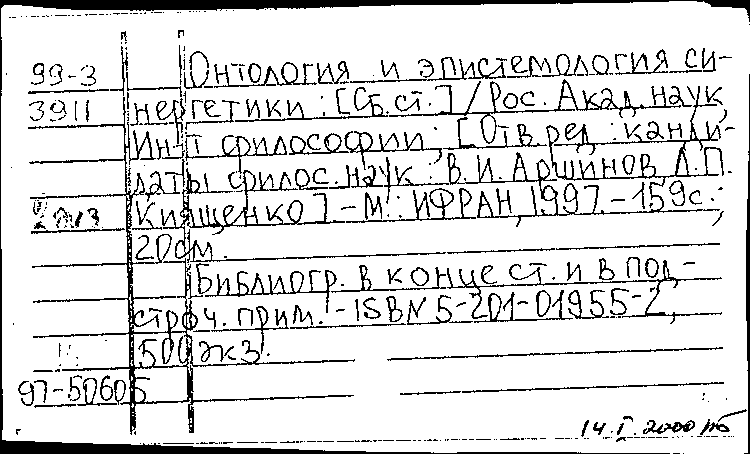 99-3 Онтология и эпистемология си-
3911 нергетики : [Сб. ст.] / Рос. Акад. наук,
Ин-т философии; [Отв. ред. : канди-
даты филос. наук : В. И. Аршинов, Л. П.
Киященко] - М. : ИФРАН, 1997. - 159с. ;
20см.
Библиогр. в конце ст. и в под-
строч. прим. - ISBN 5-201-01955-2,
500 экз.
97-50605
14. I. 2000